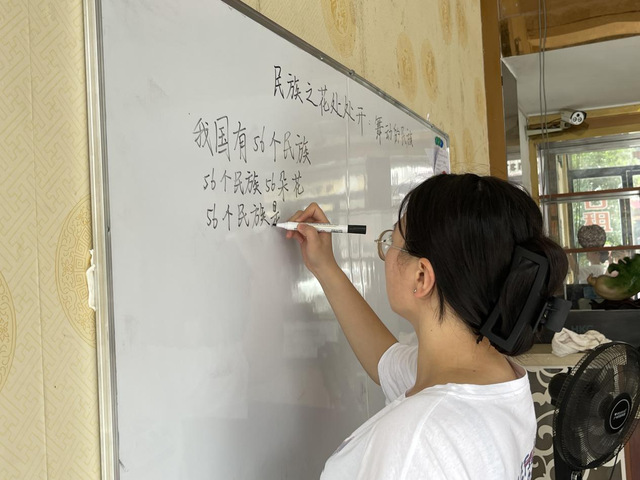 民族之花处处开,舞动的民族
我国有56个民族
56个民族56朵花
56个民族是